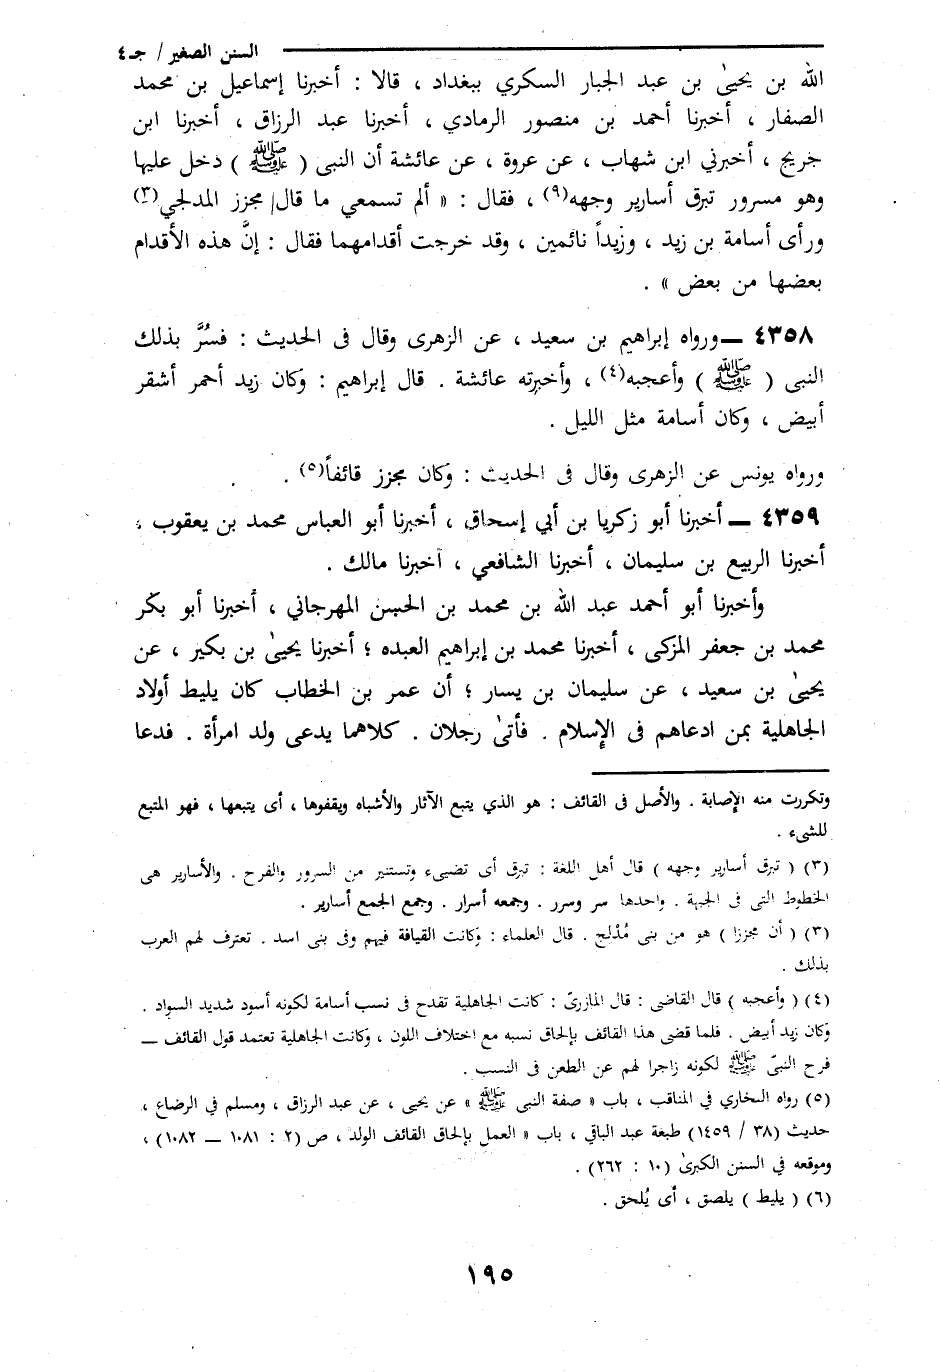 السنن الصغير / جـ٤
الله بن يحيىٰ بن عبد الجبار السكري ببغداد ، قالا : أخبرنا إسماعيل بن محمد
الصفار ، أخبرنا أحمد بن منصور الرمادي ، أخبرنا عبد الرزاق ، أخبرنا ابن
جريج ، أخبرني ابن شهاب ، عن عروة ، عن عائشة أن النبى ( ﷺ ) دخل عليها
وهو مسرور تبرق أسارير وجهه(٩) ، فقال : « ألم تسمعي ما قال/ مجزز المدلجي(٣)
ورأى أسامة بن زيد ، وزيداً نائمين ، وقد خرجت أقدامهما فقال : إنَّ هذه الأقدام
بعضها من بعض » .
٤٣٥٨ ــ ورواه إبراهيم بن سعيد ، عن الزهرى وقال فى الحديث : فسُرَّ بذلك
النبى ( ﷺ ) وأعجبه(٤) ، وأخبرته عائشة . قال إبراهيم : وكان زيد أحمر أشقر
أبيض ، وكان أسامة مثل الليل .
ورواه يونس عن الزهرى وقال فى الحديث : وكان مجزز قائفاً(٥) .
٤٣٥٩ ــ أخبرنا أبو زكريا بن أبي إسحاق ، أخبرنا أبو العباس محمد بن يعقوب ،
أخبرنا الربيع بن سليمان ، أخبرنا الشافعي ، أخبرنا مالك .
وأخبرنا أبو أحمد عبد الله بن محمد بن الحسن المهرجاني ، أخبرنا أبو بكر
محمد بن جعفر المزكى ، أخبرنا محمد بن إبراهيم العبده ؛ أخبرنا يحيىٰ بن بكير ، عن
يحيىٰ بن سعيد ، عن سليمان بن يسار ؛ أن عمر بن الخطاب كان يليط أولاد
الجاهلية بمن ادعاهم فى الإسلام . فأتىٰ رجلان . كلاهما يدعى ولد امرأة . فدعا
وتكررت منه الإصابة . والأصل فى القائف : هو الذي يتبع الآثار والأشباه ويقفوها ، أى يتبعها ، فهو المتبع
للشىء .
(٣) ( تبرق أسارير وجهه ) قال أهل اللغة : تبرق أى تضيىء وتستنير من السرور والفرح . والأسارير هى
الخطوط التى فى الجبهة . واحدها سر وسرر . وجمعه أسرار . وجمع الجمع أسارير .
(٣) ( أن مجززا ) هو من بنى مُدْلج . قال العلماء : وكانت القيافة فيهم وفى بنى اسد . تعترف لهم العرب
بذلك .
(٤) ( وأعجبه ) قال القاضى : قال المازرىّ : كانت الجاهلية تقدح فى نسب أسامة لكونه أسود شديد السواد .
وكان زيد أبيض . فلما قضى هذا القائف بإلحاق نسبه مع اختلاف اللون ، وكانت الجاهلية تعتمد قول القائف ــ
فرح النبىّ ﷺ لكونه زاجرا لهم عن الطعن فى النسب .
(٥) رواه البخاري في المناقب ، باب « صفة النبى ﷺ » عن يحيى ، عن عبد الرزاق ، ومسلم في الرضاع ،
حديث (٣٨ / ١٤٥٩) طبغة عبد الباقي ، باب « العمل بإلحاق القائف الولد ، ص (٢ : ١٠٨١ ــ ١٠٨٢) ،
وموقعه في السنن الكبرىٰ (١٠ : ٢٦٢) .
(٦) ( يليط ) يلصق ، أى يُلحق .
١٩٥